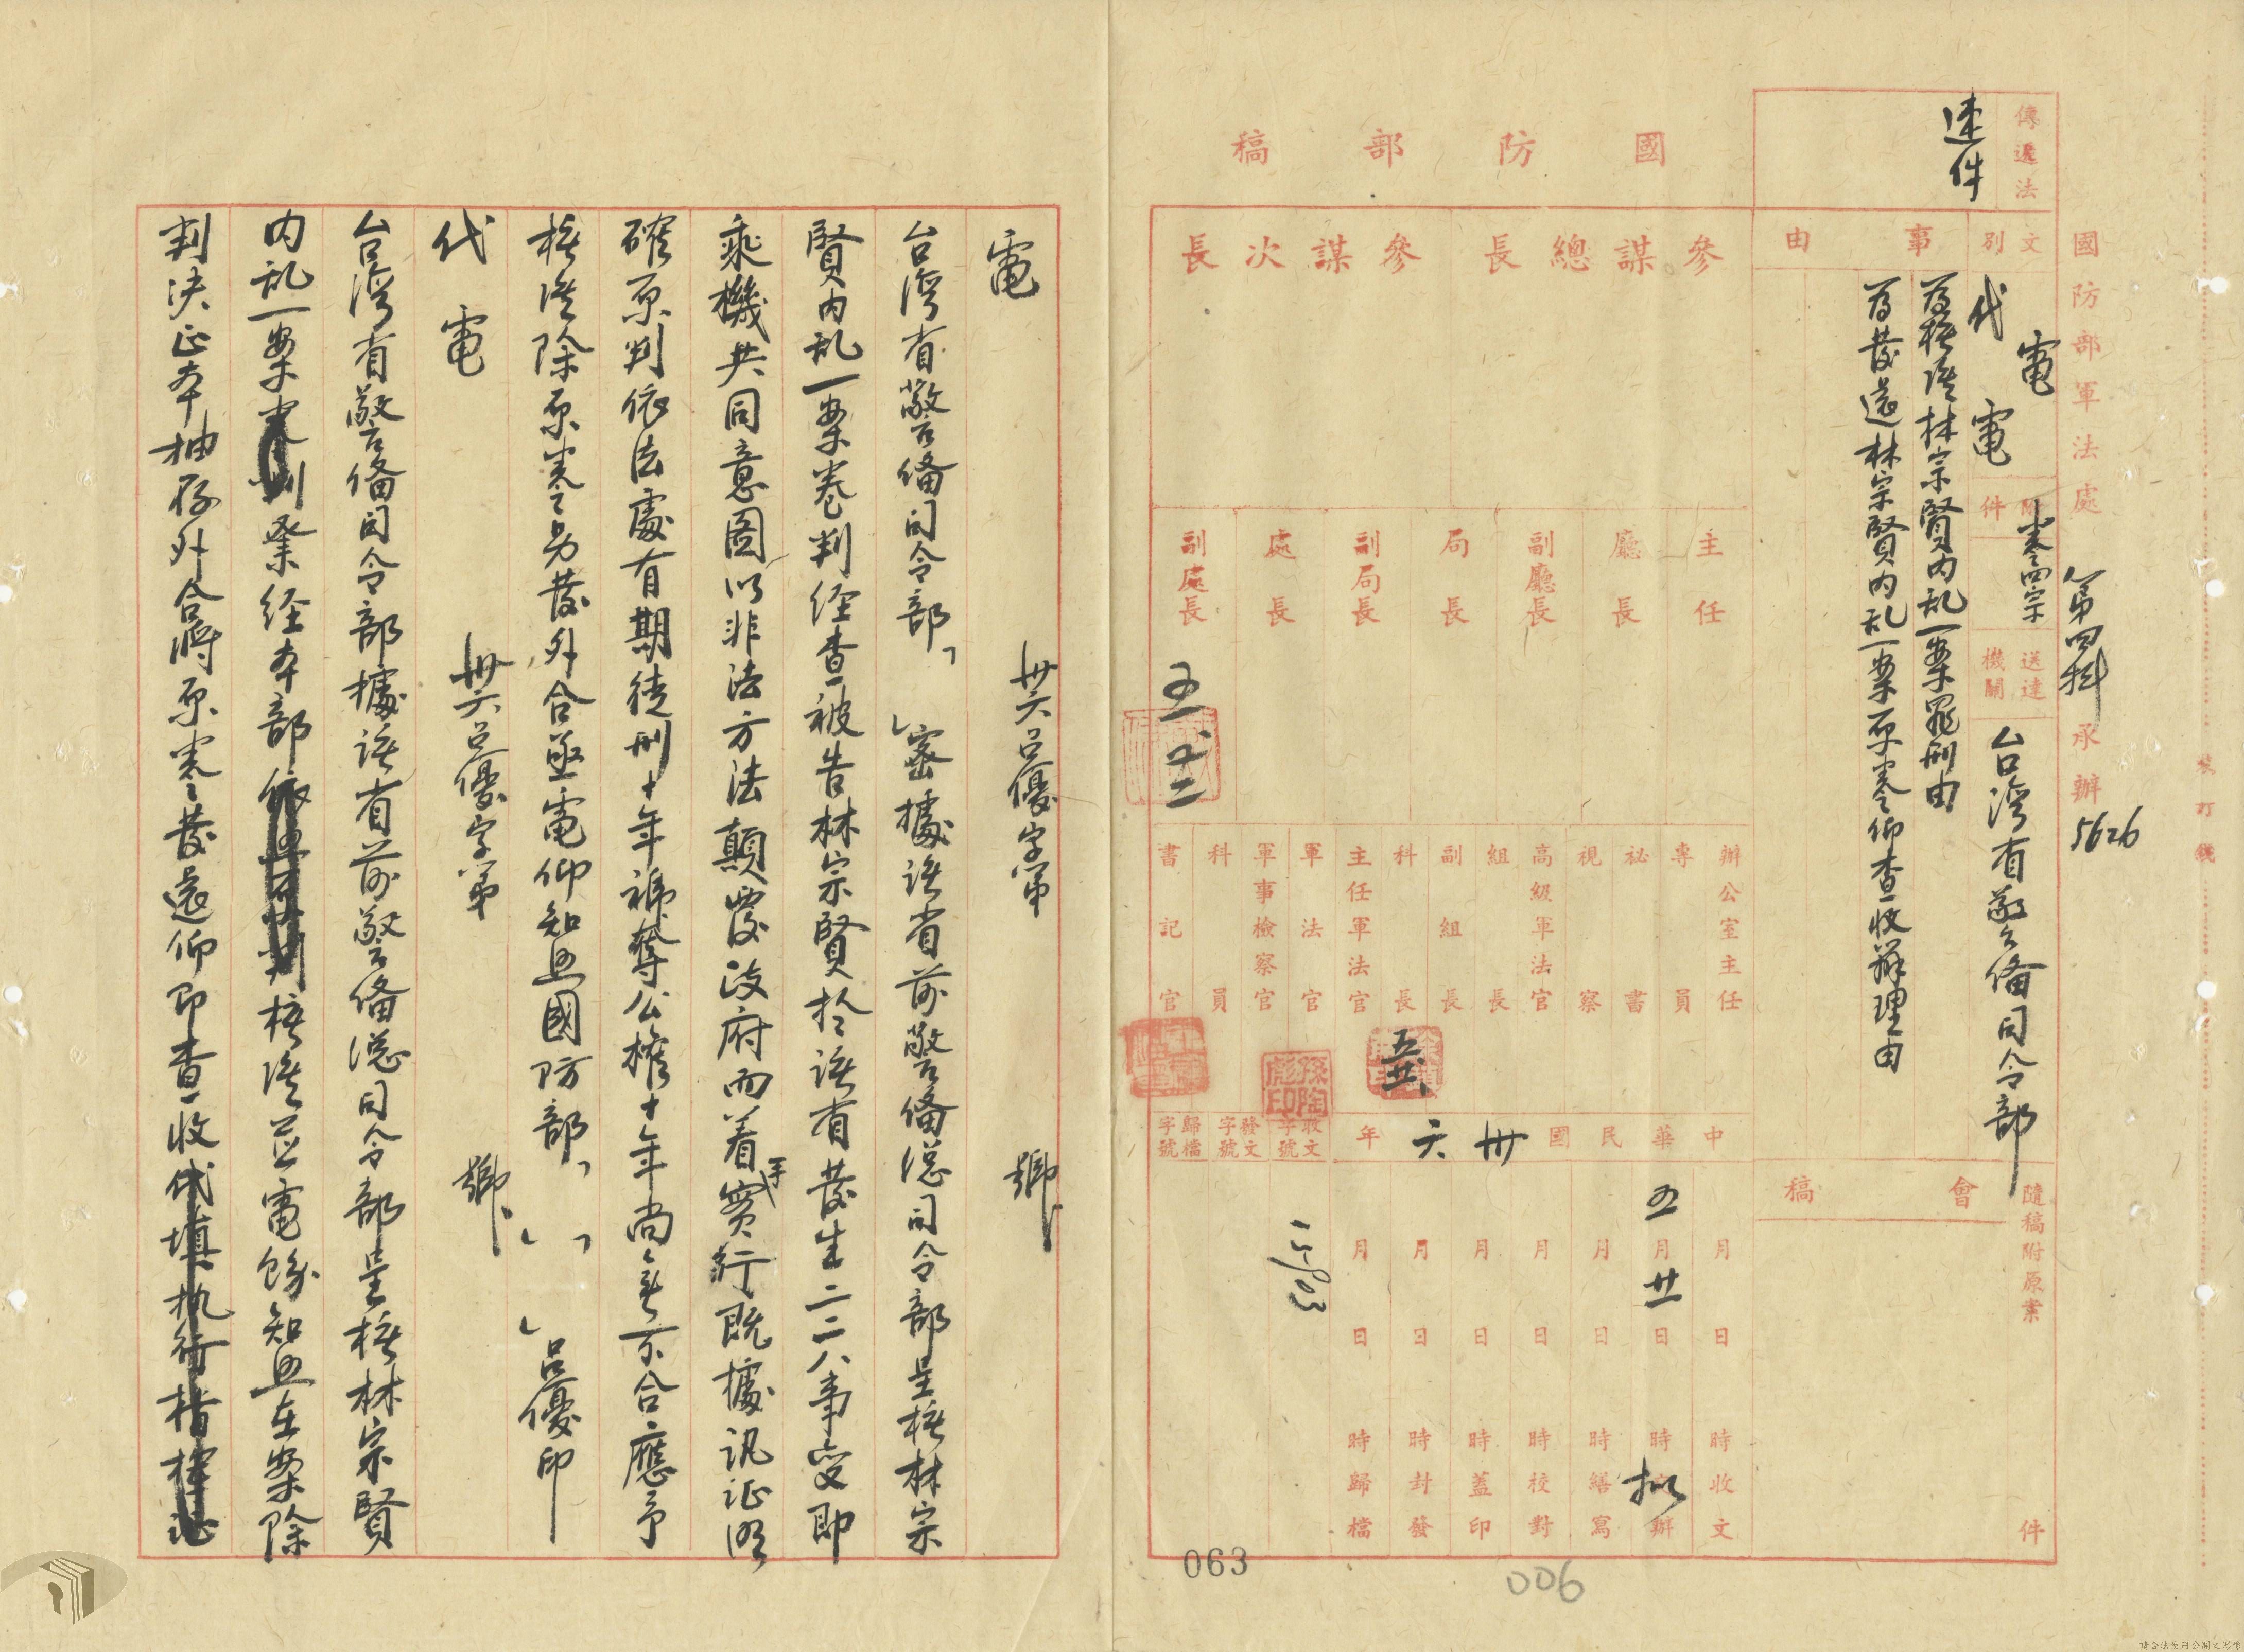 國防部軍法處 第四科 承辦 5626
裝訂線
傳遞法 速件
國防部稿
文別 電 代電
附件 卷四宗
送達機關 台灣省警備司令部
事由
為核准林宗賢內乱一案罪刑由
為發還林宗賢內乱一案原卷仰查收辦理由
隨稿附原案 件
會稿
參謀總長
參謀次長
主任
廳長
副廳長
局長
副局長
處長
副處長
五 廿二
辦公室主任
專員
秘書
視察
高級軍法官
組長
副組長
科長
主任軍法官
軍法官
軍事檢察官
科員
書記官
五 廿一
孫陶彪印
中華民國卅六年
月 日 時收文
五月廿一日 時擬辦
月 日 時繕寫
月 日 時校對
月 日 時蓋印
月 日 時封發
月 日 時歸檔
收文字號
發文字號
歸檔字號
063
006
電 卅六呂優字第 號
台灣省警備司令部 密據該省前警備總司令部呈核林宗
賢內乱一案卷判經查被告林宗賢於該省發生二二八事变即
乘機共同意圖以非法方法顛覆政府而着手实行既據訊证明
確原判依法處有期徒刑十年褫奪公權十年尚無不合應予
核准除原卷另發外合亟電仰知照國防部 呂優印
代電 卅六呂優字第 號
台灣省警備司令部據該省前警備總司令部呈核林宗賢
內乱一案卷判業經本部核准並電飭知照在案除
判决正本抽存外合將原卷發還仰即查收
請合法使用公開之影像